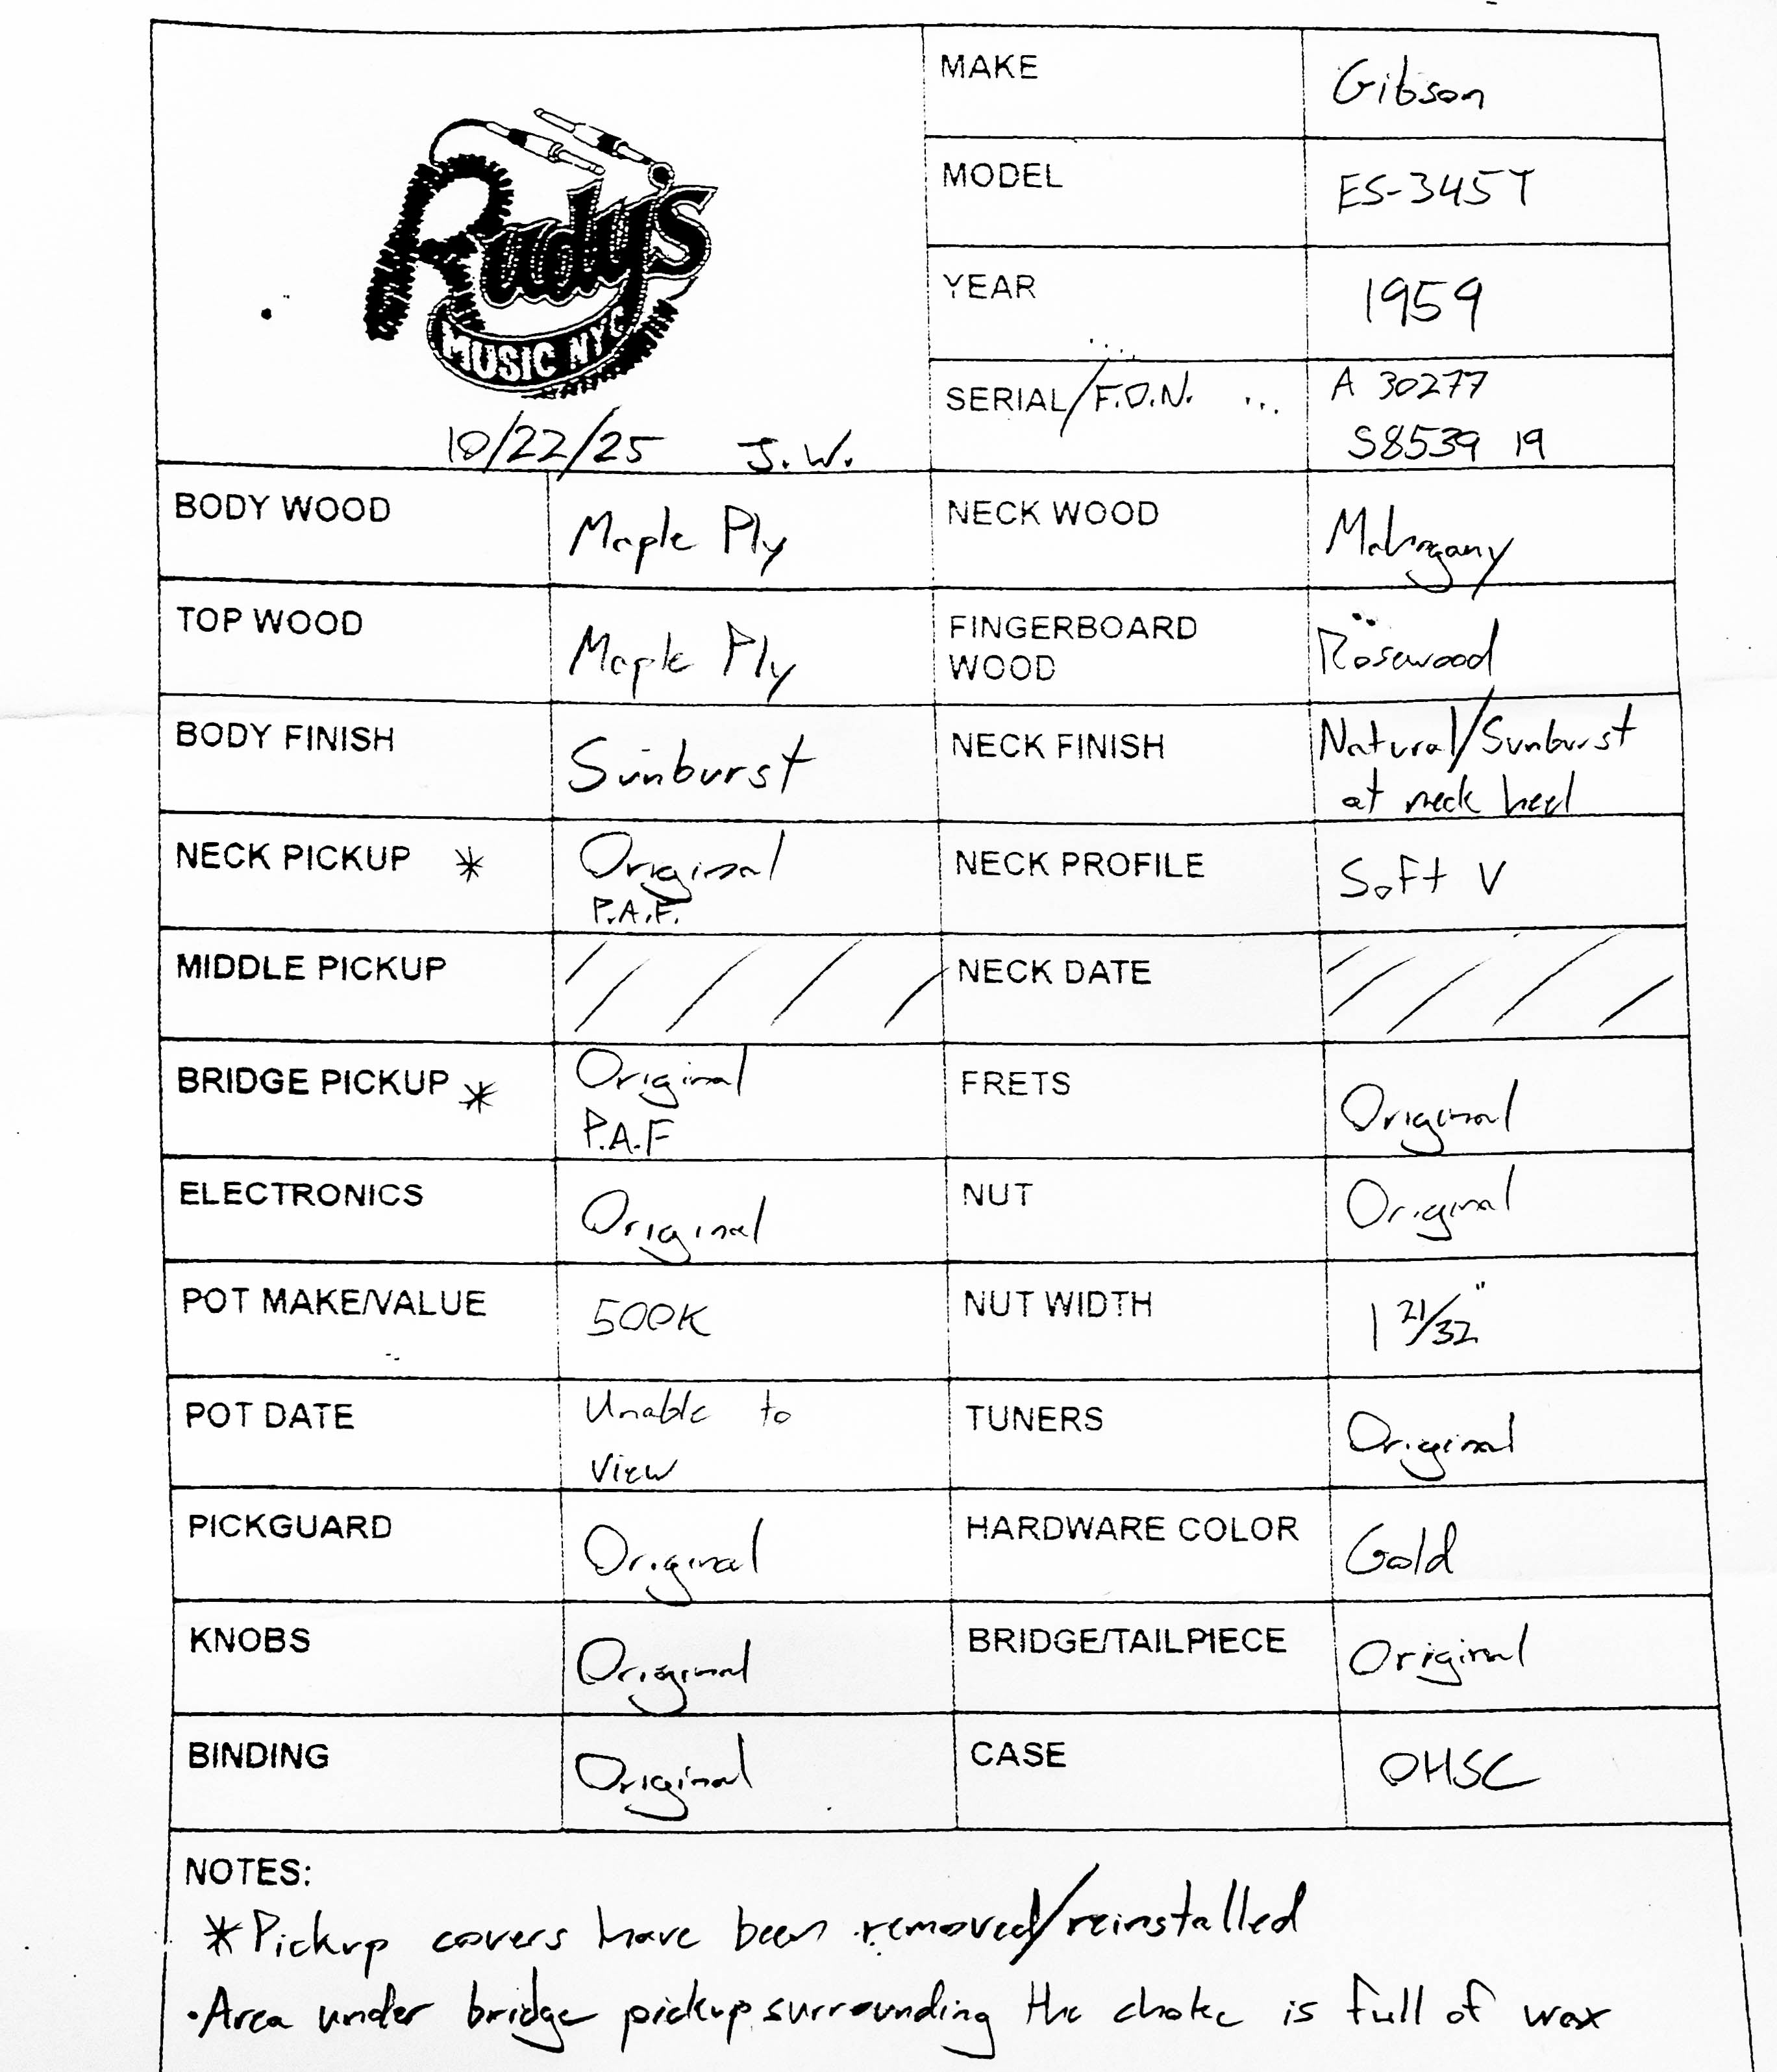 Rudys
MUSIC NYC
10/22/25 J.W.
MAKE Gibson
MODEL ES-345T
YEAR 1959
SERIAL/F.O.N. ... A 30277
S8539 19
BODY WOOD Maple Ply NECK WOOD Mahogany
TOP WOOD Maple Ply FINGERBOARD WOOD Rosewood
BODY FINISH Sunburst NECK FINISH Natural/Sunburst
at neck heel
NECK PICKUP * Original
P.A.F. NECK PROFILE Soft V
MIDDLE PICKUP NECK DATE
BRIDGE PICKUP * Original
P.A.F FRETS Original
ELECTRONICS Original NUT Original
POT MAKE/VALUE 500K NUT WIDTH 1 21/32"
POT DATE Unable to
View TUNERS Original
PICKGUARD Original HARDWARE COLOR Gold
KNOBS Original BRIDGE/TAILPIECE Original
BINDING Original CASE OHSC
NOTES:
*Pickup covers have been removed/reinstalled
·Area under bridge pickup surrounding the choke is full of wax